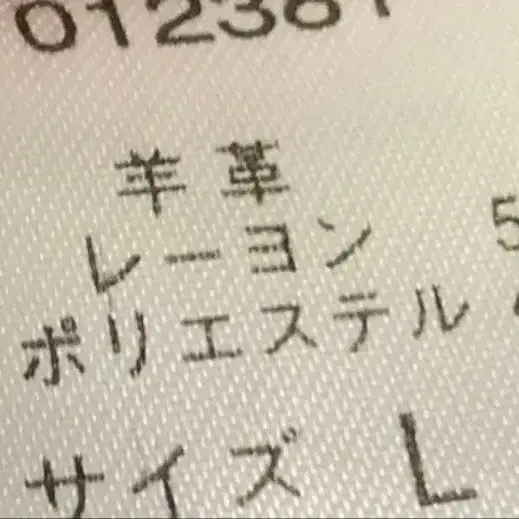 012381
羊革
レーヨン 5
ポリエステル
サイズ L